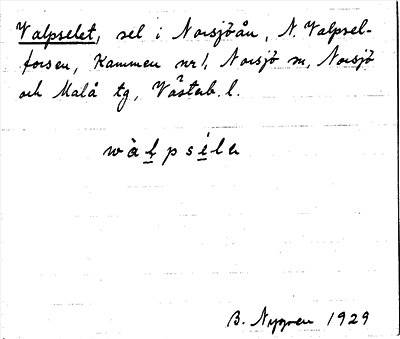 Valpselet, sel i Norsjöån, N. Valpsel-
forsen, Kammen nr 1, Norsjö sn, Norsjö
och Malå tg, Västerb. l.
wàl̲ps i̲ l a
B. Nygren 1929